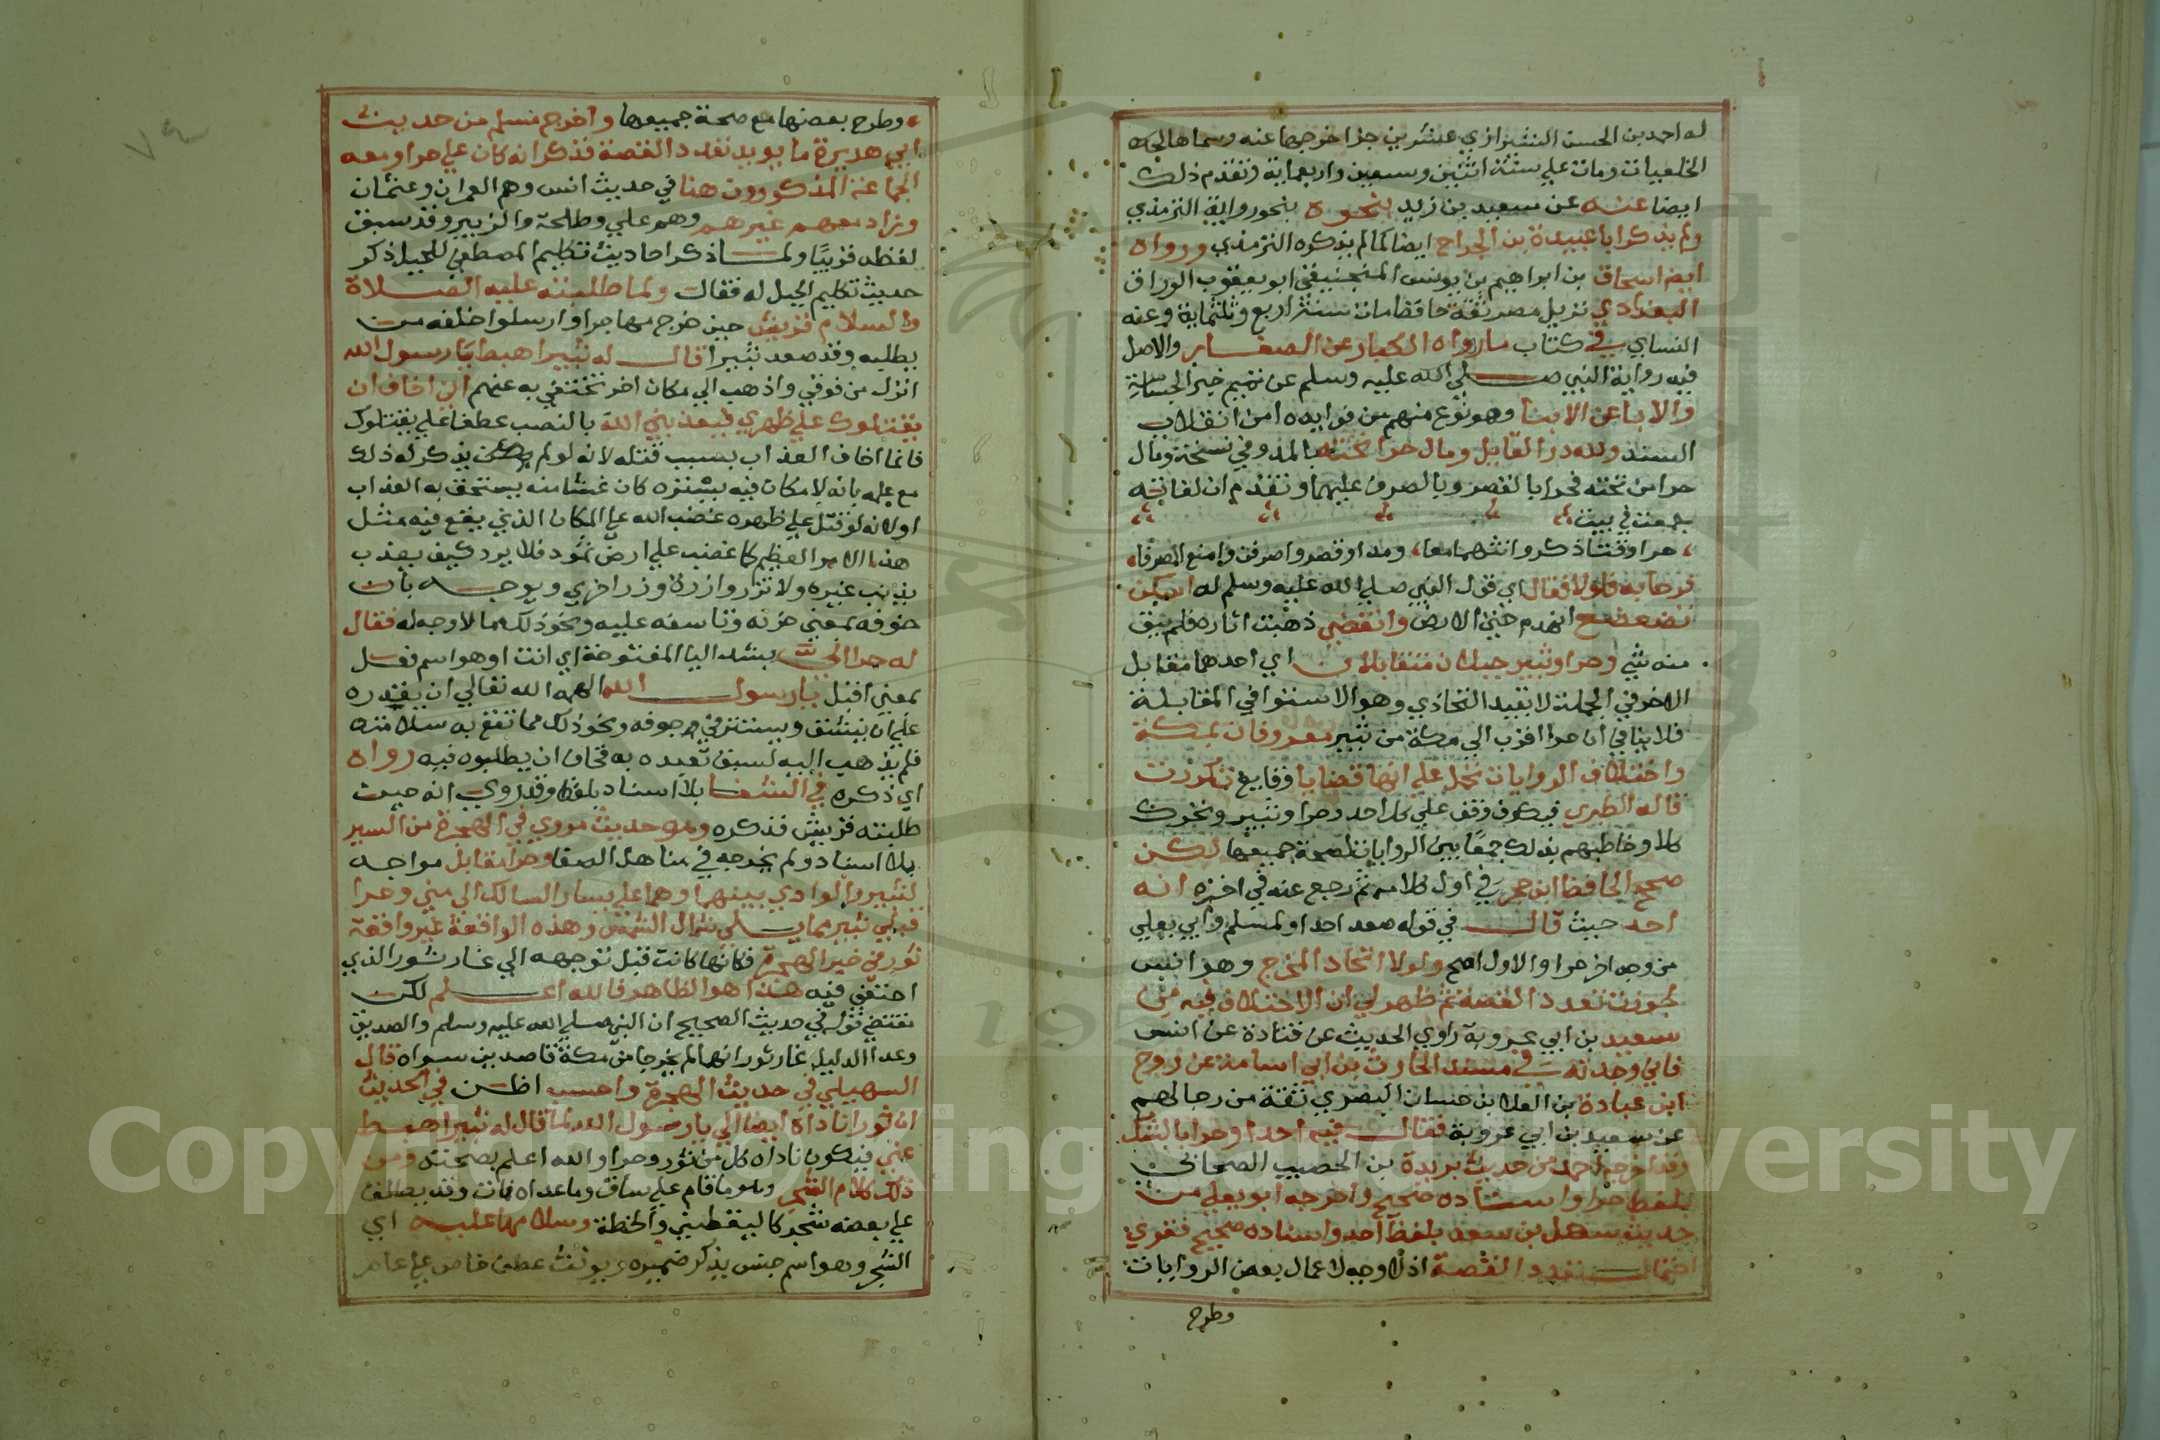 له احمد بن الحسن الشيرازي عشرين جزا خرجها عنه وسماها
الخلعيات ومات علي سنة اثنين وسبعين واربعماية وتقدم ذلك
ايضا عنه عن سعيد بن زيد بنحوه بنحو رواية الترمذي
ولم يذكر ابا عبيدة بن الجراح ايضا كما لم يذكره الترمذي ورواه
ايض اسحاق بن ابراهيم بن يونس المنجنيقي ابو يعقوب الوراق
البغدادي نزيل مصر ثقة حافظ مات سنة اربع وثلثماية وعنه
النساي في كتاب ما رواه الكبار عن الصغار والاصل
فيه رواية النبي صلي الله عليه وسلم عن تميم خبر الجساسة
والابا عن الابنا وهو نوع منهم من فوايده امن انقلاب
السند ولله در القايل ومال حرا تحته بالمد وفي نسخة ومال
حرا من تحته فحرا بالقصر وبالصرف عليهما وتقدم ان لغاته
جمعت في بيت
حرا وقبا ذكر وانثهما معا ومد او قصر واصرفن وامنع الصرفا
فرحا به فلولا فقال اي قول النبي صلي الله عليه وسلم له اسكن
تضعضع انهدم حتي الارض وانقضي ذهبت اثاره فلم يبق
منه شي وحرا وثبير جبلان متقابلان اي احدهما مقابل
الاخر في الجملة لا بقيد التحاذي وهو الاستوا في المقابلة
فلا ينافي ان حرا اقرب الي مكة من ثبير معروفان بمكة
واختلاف الروايات تحمل علي انها قضايا وقايع تكررت
قاله الطبري فيكون وقف علي كل احد وحرا وثبير وتحرك
كلا وخاطبهم بذلك جمعا بين الروايات لصحة جميعها لكن
صحح الحافظ ابن حجر في اول كلامه ثم رجع عنه في اخره انه
احد حيث قال في قوله صعد احدا ولمسلم وابي يعلي
من وجه اخر حرا والاول اصح ولولا اتحاد المخرج وهو انس
لجوزت تعدد القصة ثم ظهر لي ان الاختلاف فيه من
سعيد بن ابي عروبة راوي الحديث عن قتادة عن انس
فاني وجدته في مسند الحارث بن ابي اسامة عن روح
ابن عبادة بن العلا بن حسان البصري ثقة من رجالهم
عن سعيد بن ابي عروبة فقال فيه احدا وحرا بالشك
وقد اخرجه احمد من حديث بريدة بن الحصيب الصحابي
بلفظ حرا واسناده صحيح واخرجه ابو يعلي من
حديث سهل بن سعد بلفظ احد واسناده صحيح فقوي
احتمال تعدد القصة اذ لا وجه لاعمال بعض الروايات
وطرح
وطرح بعضها مع صحة جميعها واخرج مسلم من حديث
ابي هريرة ما يويد تعدد القصة فذكر انه كان علي حرا ومعه
الجماعة المذكورون هنا في حديث انس وهم العمران وعثمان
وزاد معهم غيرهم وهم علي وطلحة والزبير وقد سبق
لفظه قريبا ولما ذكر احاديث تكليم المصطفي للجبيل ذكر
حديث تكليم الجبل له فقال ولما طلبته عليه الصلاة
والسلام قريش حين خرج مهاجرا وارسلوا خلفه من
يطلبه وقد صعد ثبيرا قال له ثبير اهبط يا رسول الله
انزل من فوقي واذهب الي مكان اخر تختفي به عنهم اني اخاف ان
يقتلوك علي ظهري فيعذبني الله بالنصب عطفا علي يقتلوك
فانما اخاف العذاب بسبب قتله لانه لو لم يذكر له ذلك
مع علمه بانه لا مكان فيه يستره كان غشا منه يستحق به العذاب
او لانه لو قتل علي ظهره غضب الله علي المكان الذي يقع فيه مثل
هذا الامر العظيم كما غضب علي ارض ثمود فلا يرد كيف يعذب
بذنب غيره ولا تزر وازرة وزر اخري ويوجه بان
خوفه بمعني حزنه وتاسفه عليه ونحو ذلك مما لا وجه له فقال
له حرا الي بشد اليا المفتوحة اي انت او هو اسم فعل
بمعني اقبل يا رسول الله الهمه الله تعالي ان يقدره
علي ان ينشق ويستتر في جوفه ونحو ذلك مما تقع به سلامته
فلم يذهب اليه لسبق تعبده به فخاف ان يطلبوه فيه رواه
اي ذكره في الشفا بلا اسناد بلفظ وقد روي انه حين
طلبته قريش فذكره وهو حديث مروي في الهجرة من السير
بلا اسناد ولم يخرجه في مناهل الصفا وحرا مقابل مواجه
لثبير والوادي بينهما وهما علي يسار السالك الي مني وحرا
قبلي ثبير مما يلي شمال الشمس وهذه الواقعة غير واقعة
ثور في خبر الهجرة فكانها كانت قبل توجهه الي غار ثور الذي
اختفي فيه هذا هو الظاهر فالله اعلم لكن
مقتضي قوله في حديث الصحيح ان النبي صلي الله عليه وسلم والصديق
وعدا الدليل غار ثور انهما لم يخرجا من مكة قاصدين سواه قال
السهيلي في حديث الهجرة واحسب اظن في الحديث
ان ثورا ناداه ايضا الي يا رسول الله لما قال له ثبير اهبط
عني فيكون ناداه كل من ثور وحرا والله اعلم بصحته ومن
ذلك كلام الشجر وهو ما قام علي ساق وما عداه نبات وقد يطلق
علي بعضه شجر كاليقطين والحنطة وسلامها عليه اي
الشجر وهو اسم جنس يذكر ضميره ويونث عطف خاص علي عام
Copyright © King Saud University